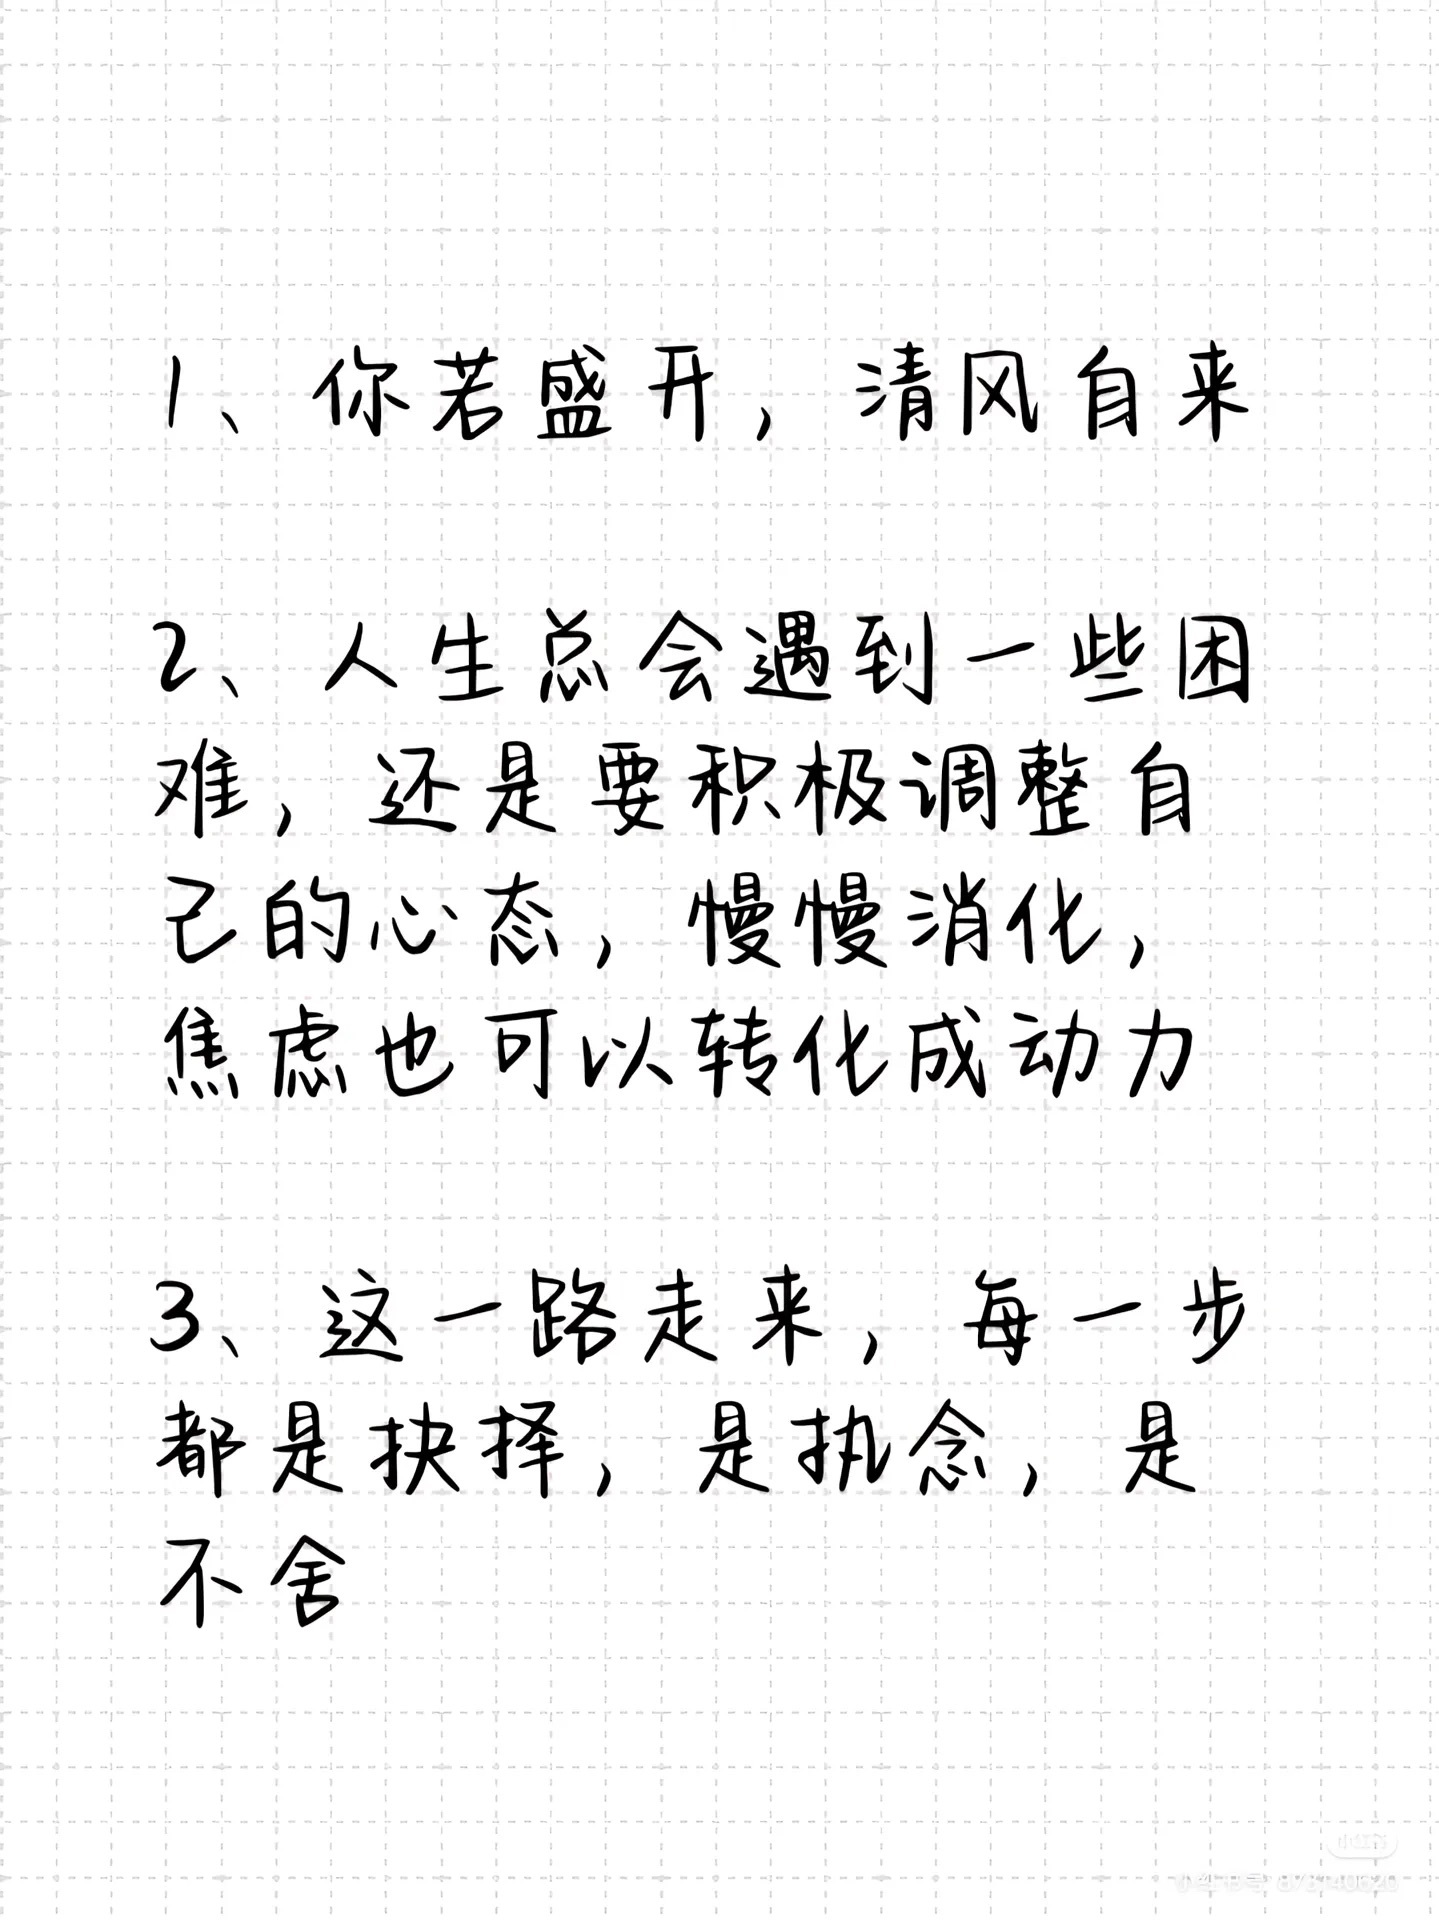 1、你若盛开，清风自来
2、人生总会遇到一些困
难，还是要积极调整自
己的心态，慢慢消化，
焦虑也可以转化成动力
3、这一路走来，每一步
都是抉择，是执念，是
不舍
小红书